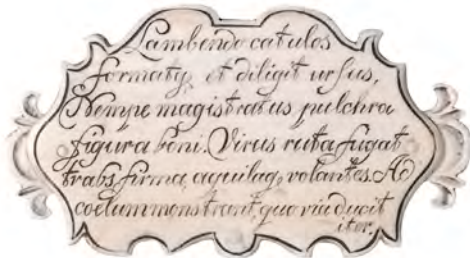 Lambendo catulos
formatq, et diligit ursus,
Nempe magistratus pulchra
figura boni. Virus ruta fugat
trabs firma, aquilaq, volantes. Ad
coelum monstrant, quo via ducit
iter.